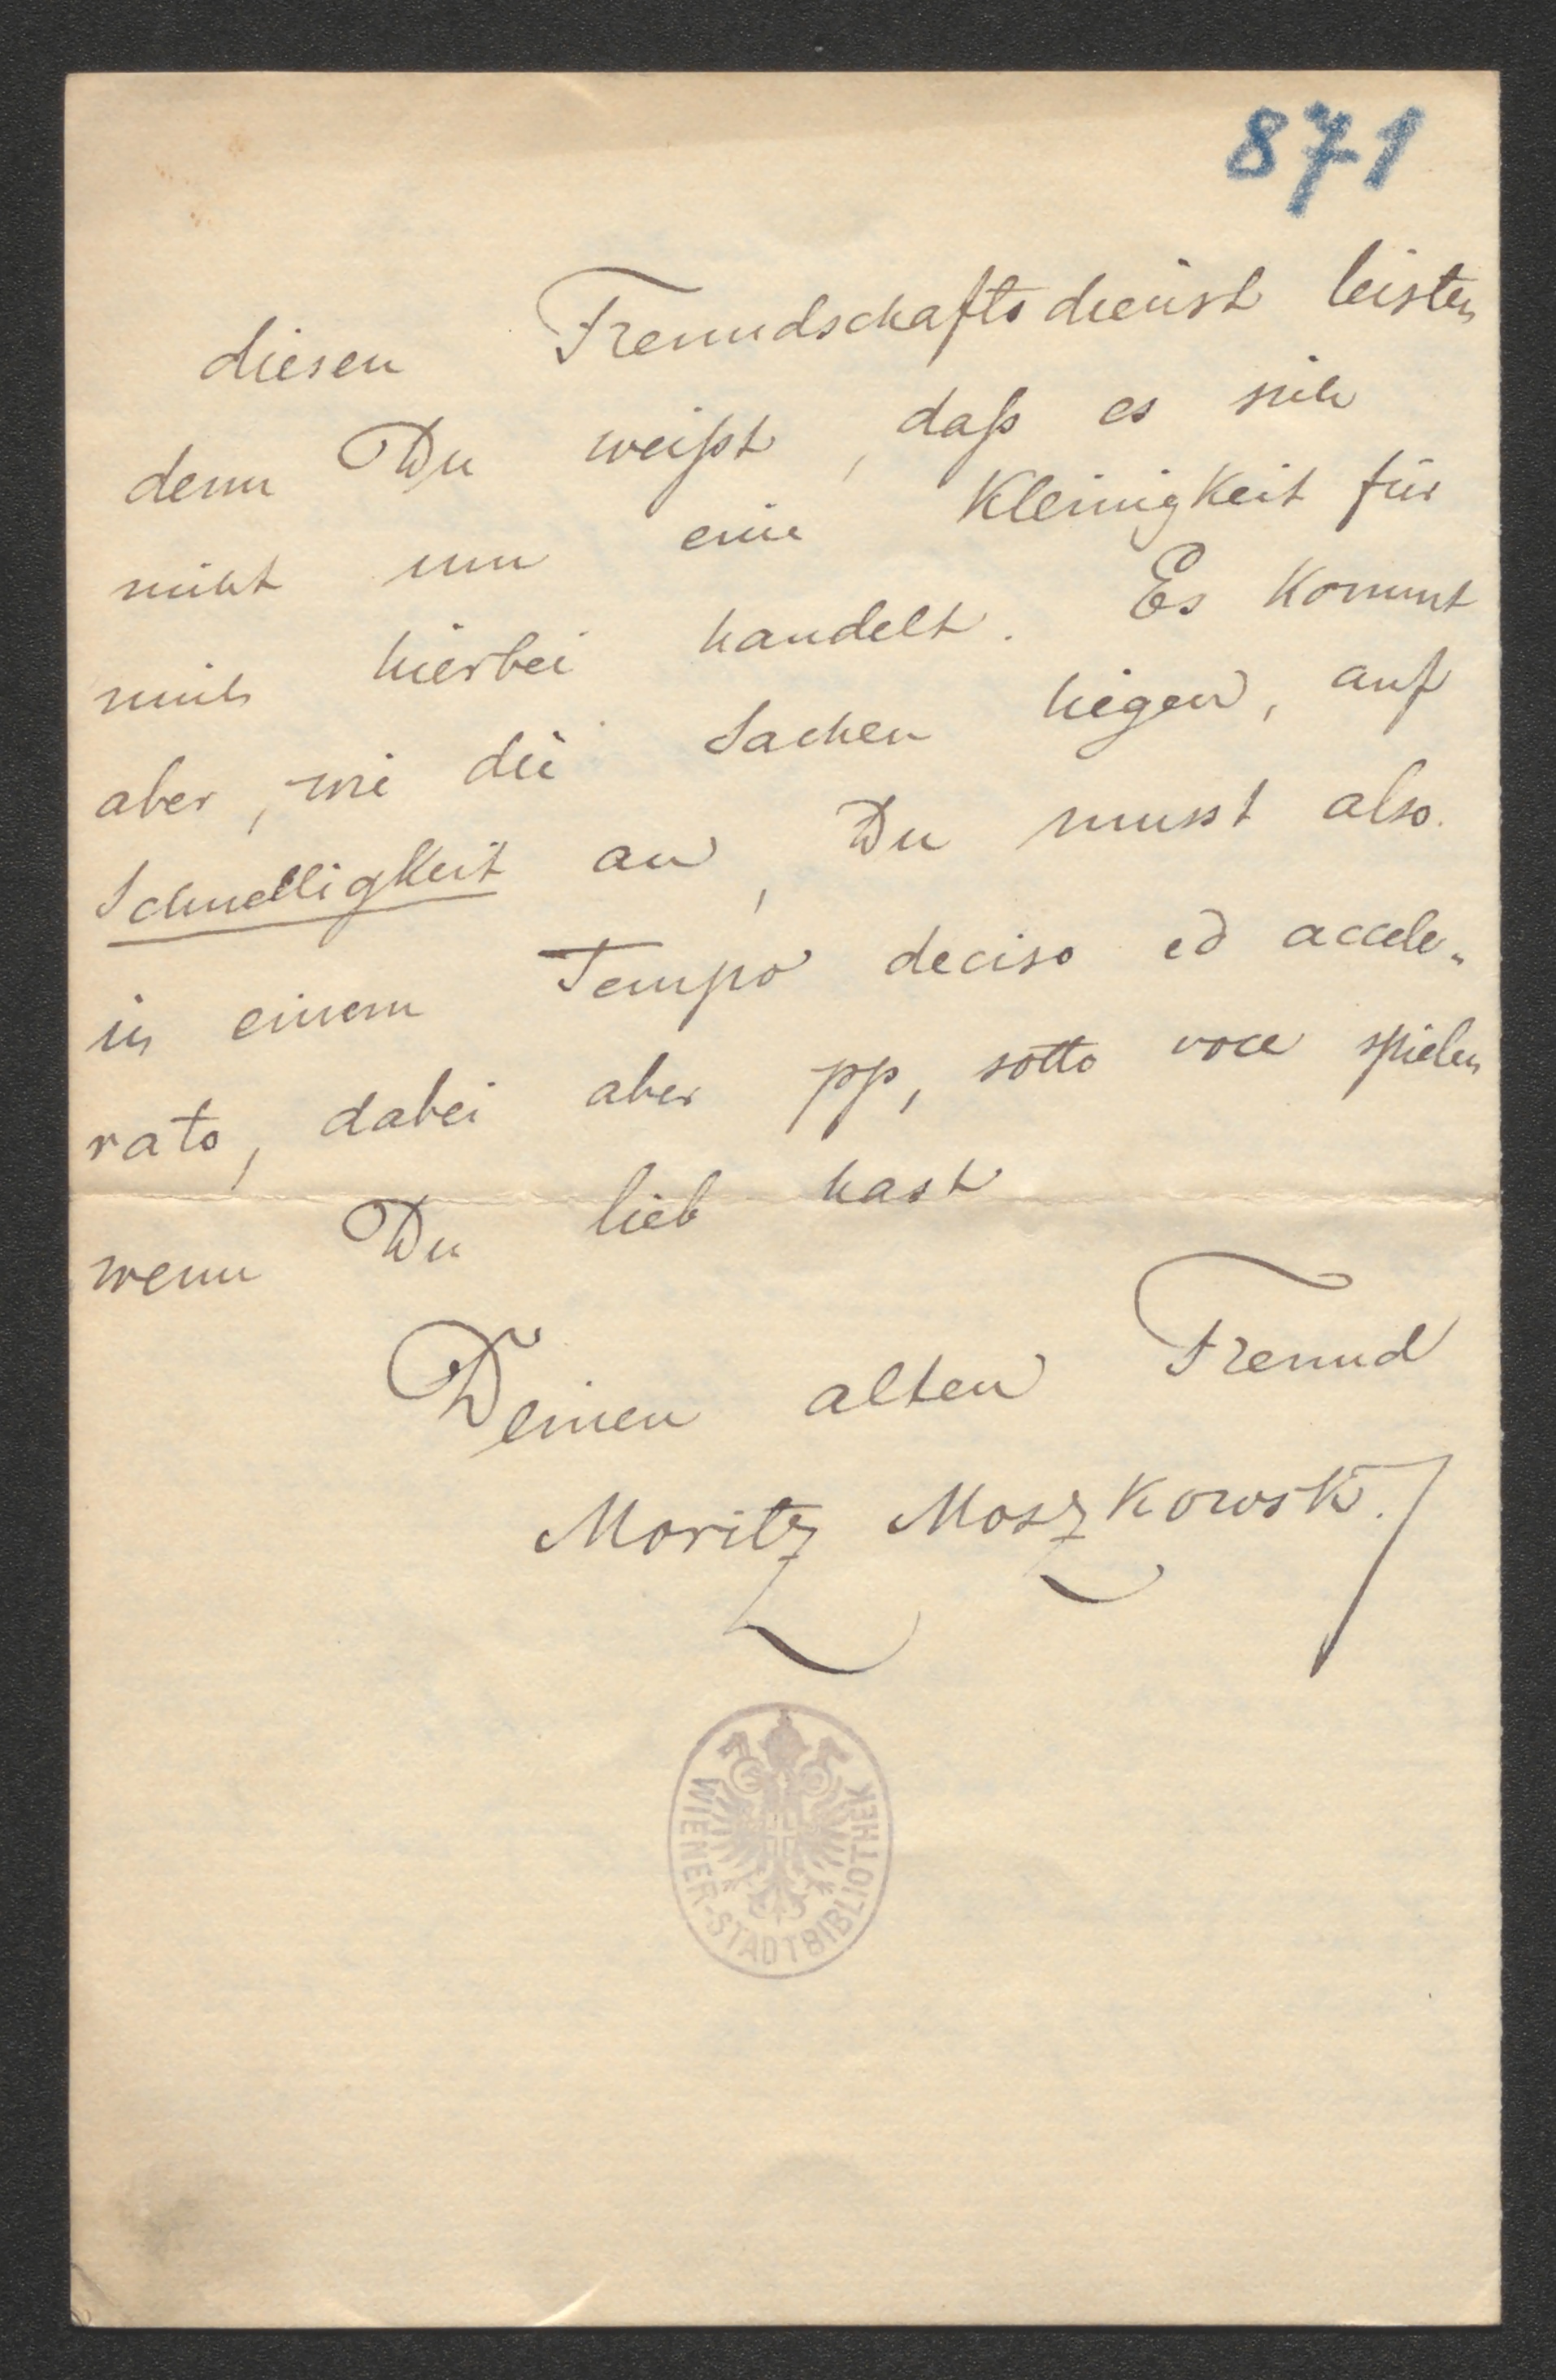 871
diesen Freundschaftsdienst leisten
denn Du weißt, daß es sich
nicht um eine Kleinigkeit für
mich hierbei handelt. Es kommt
aber, wie die Sachen liegen, auf
Schnelligkeit an, Du musst also
in einem Tempo deciso ed accele-
rato, dabei aber pp, sotto voce spielen
wenn Du lieb hast
Deinen alten Freund
Moritz Moszkowski
WIENER-STADTBIBLIOTHEK